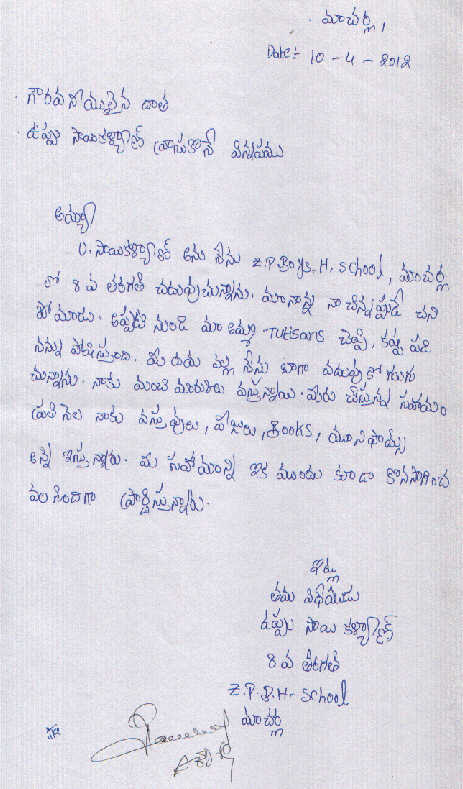 మాచర్ల,
Date:- 10-4-2012
గౌరవనీయులైన దాత
ఉప్పు సాయికళ్యాణ్ వ్రాసుకొనే విన్నపము
అయ్యా
U. సాయికళ్యాణ్ అను నేను Z.P.Boys.H.School, మాచర్ల
లో 8వ తరగతి చదువుచున్నాను. మా నాన్న నా చిన్నప్పుడే చని
పోయాడు. అప్పటి నుండి మా అమ్మ Tutions చెప్పి, కష్ట పడి
నన్ను పోషిస్తుంది. మీ దయ వల్ల నేను బాగా చదువుకో గలుగు
చున్నాను. నాకు మంచి మార్కులు వస్తున్నాయి. మీరు చేస్తున్న సహాయం
ప్రతి నెల నాకు వస్తువులు, ఫీజులు, Books, యూనిఫామ్స్
అన్ని ఇస్తున్నారు. మీ సహాయాన్ని ఇక ముందు కూడా కొనసాగించ
వలసిందిగా ప్రార్థిస్తున్నాను.
ఇట్లు
తమ విధేయుడు
ఉప్పు సాయి కళ్యాణ్
8వ తరగతి
Z.P.B.H-School
మాచర్ల